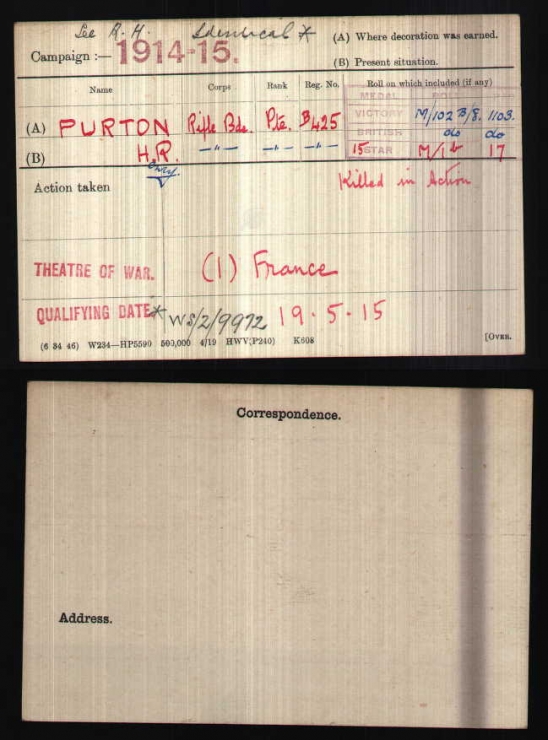 See R.H. Identical *
Campaign :— 1914-15.
(A) Where decoration was earned.
(B) Present situation.
Name Corps Rank Reg. No. Roll on which included (if any)
MEDAL ROLL
(A) PURTON Rifle Bde. Pte. B/425 VICTORY M/102 B/8. 1103.
BRITISH do do
(B) H.R. —"— —"— —"— 15 STAR M/1 B 17
only.
Action taken Killed in Action
THEATRE OF WAR. (1) France
QUALIFYING DATE * WS/2/9972 19.5.15
(6 34 46) W234—HP5590 500,000 4/19 HWV(P240) K608 [OVER.
Correspondence.
Address.